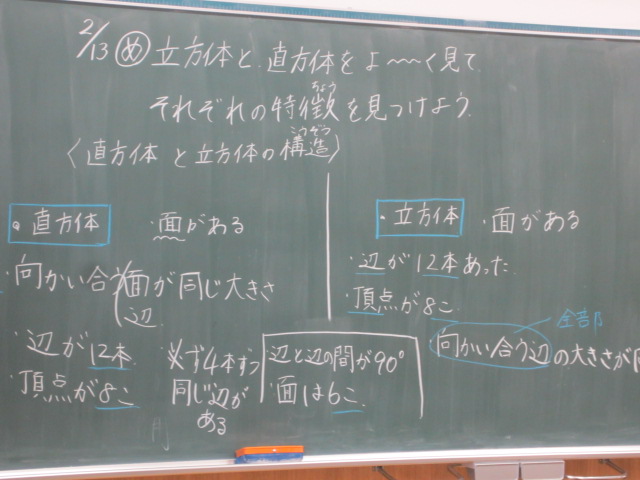 2/13 め 立方体と直方体をよ〜〜く見て
それぞれの特徴を見つけよう。
ちょう
〈直方体と立方体の構造〉
こうぞう
・直方体
・面がある
・向かい合う(面が同じ大きさ
辺
・辺が12本
・頂点が8こ
必ず4本ずつ
同じ辺が
ある
辺と辺の間が90°
・面は6こ
・立方体
・面がある
・辺が12本あった
・頂点が8こ
全部
・向かい合う辺の大きさが同